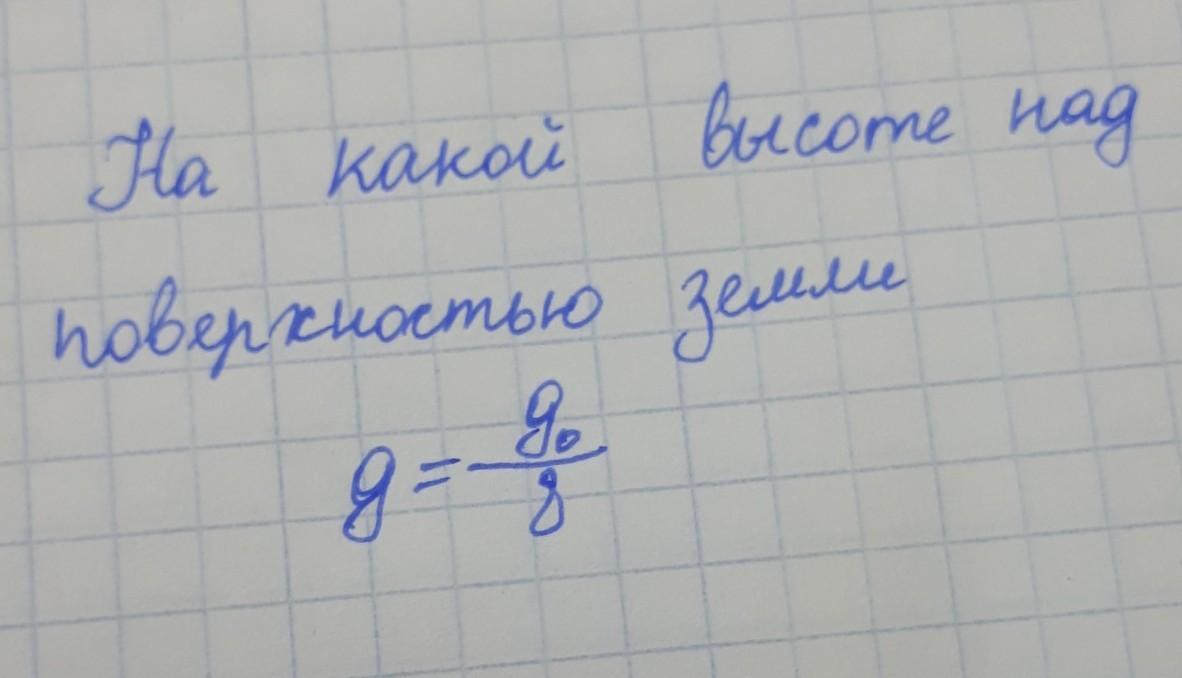 На какой высоте над
поверхностью земли
g = g₀/8